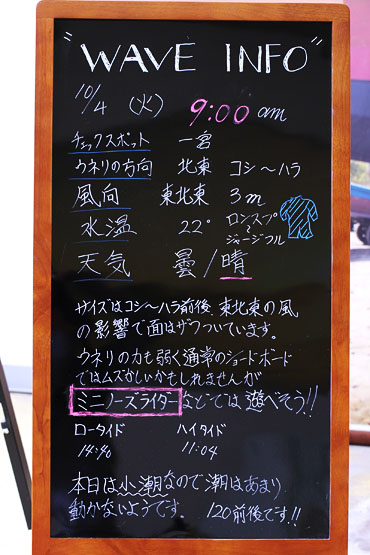 "WAVE INFO"
10/4 (火) 9:00 am
チェックスポット 一宮
ウネリの方向 北東 コシ〜ハラ
風向 東北東 3m
水温 22° ロンスプ〜ジャージフル
天気 曇/晴
サイズはコシ〜ハラ前後、東北東の風
の影響で面はザワついています。
ウネリの力も弱く通常のショートボード
ではムズかしいかもしれませんが
ミニノーズライダーなどでは遊べそう!!
ロータイド ハイタイド
14:40 11:04
本日は小潮なので潮はあまり
動かないようです。 120前後です!!